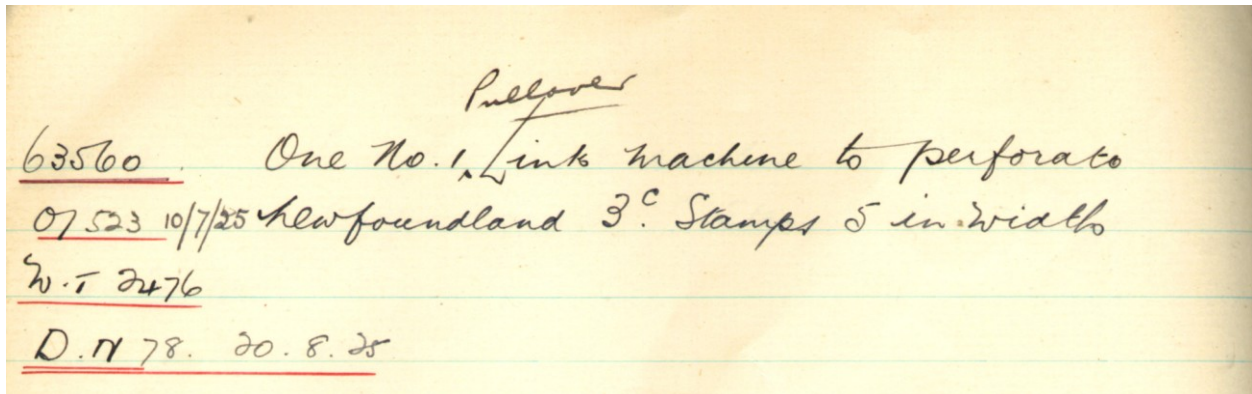 Pullover
63560. One No. 1, Link machine to perforate
O/ 523 10/7/25 Newfoundland 3c. Stamps 5 in width
W.T 2476
D.N 78. 20.8.25